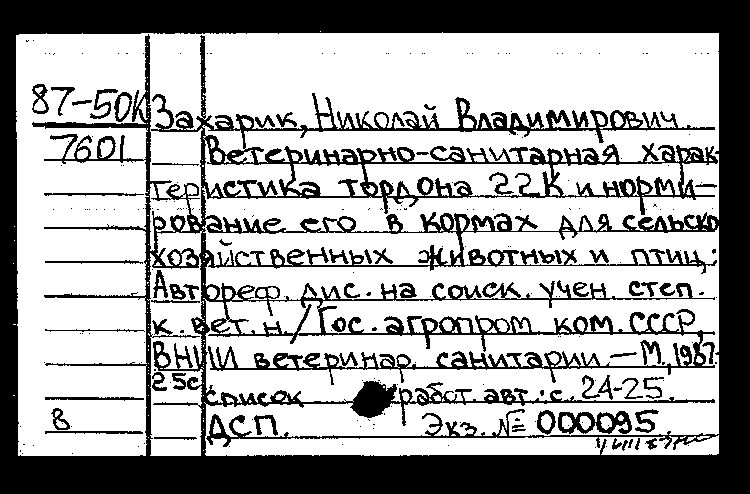 87-50К Захарик, Николай Владимирович.
7601 Ветеринарно-санитарная харак-
теристика тордона 22К и норми-
рование его в кормах для сельско
хозяйственных животных и птиц:
Автореф. дис. на соиск. учен. степ.
к. вет. н. / Гос. агропром. ком. СССР,
ВНИИ ветеринар. санитарии. - М., 1987-
25с список работ авт.: с. 24-25.
8 ДСП. Экз. № 000095